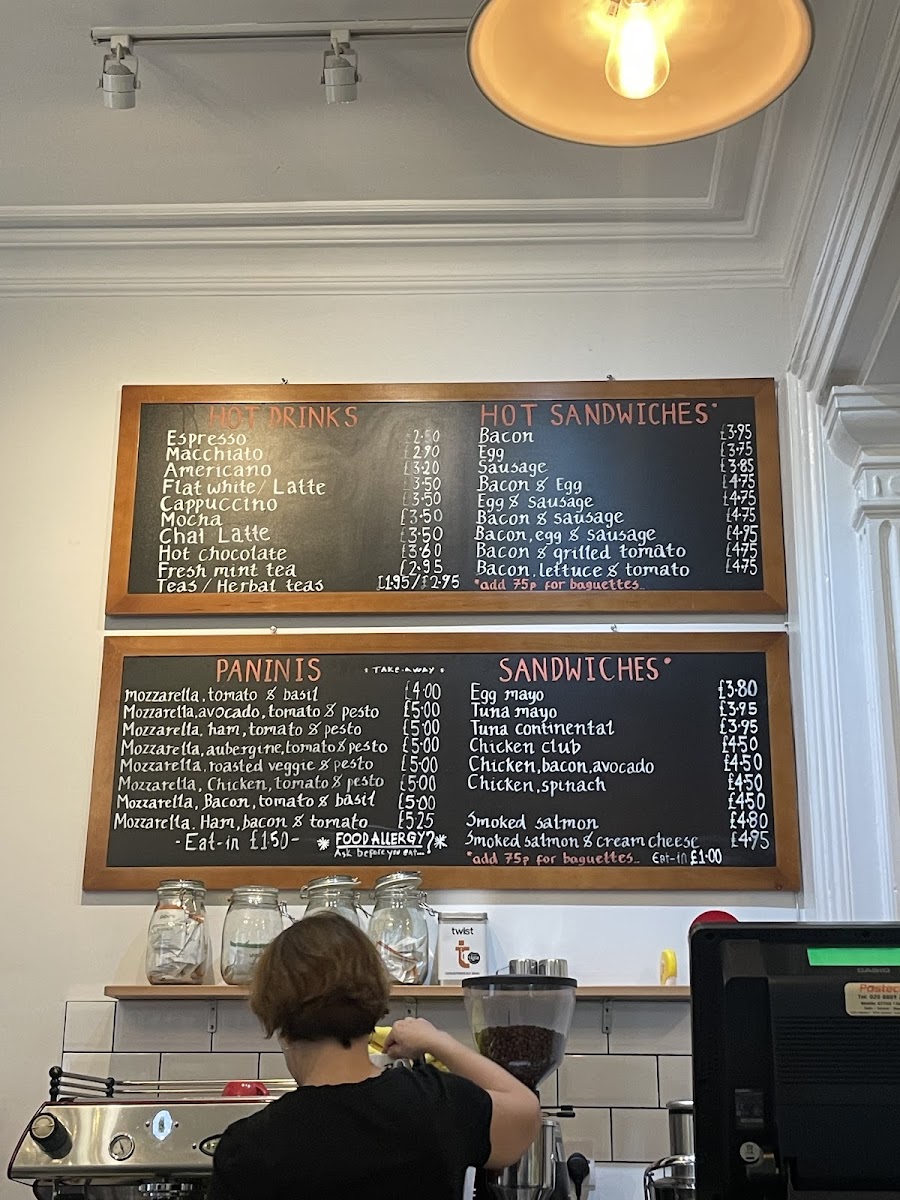 HOT DRINKS
Espresso £2.50
Macchiato £2.90
Americano £3.20
Flat white / Latte £3.50
Cappuccino £3.50
Mocha £3.50
Chai Latte £3.50
Hot chocolate £3.60
Fresh mint tea £2.95
Teas / Herbal teas £1.95/£2.95
HOT SANDWICHES*
Bacon £3.95
Egg £3.75
Sausage £3.85
Bacon & Egg £4.75
Egg & Sausage £4.75
Bacon & sausage £4.75
Bacon, egg & sausage £4.95
Bacon & grilled tomato £4.75
Bacon, lettuce & tomato £4.75
*add 75p for baguettes..
PANINIS • TAKE-AWAY •
Mozzarella, tomato & basil £4.00
Mozzarella, avocado, tomato & pesto £5.00
Mozzarella, ham, tomato & pesto £5.00
Mozzarella, aubergine, tomato & pesto £5.00
Mozzarella, roasted veggie & pesto £5.00
Mozzarella, Chicken, tomato & pesto £5.00
Mozzarella, Bacon, tomato & basil £5.00
Mozzarella, Ham, bacon & tomato £5.25
-Eat-in £1.50-
* FOOD ALLERGY? *
Ask before you eat...
SANDWICHES*
Egg mayo £3.80
Tuna mayo £3.95
Tuna continental £3.95
Chicken club £4.50
Chicken, bacon, avocado £4.50
Chicken, spinach £4.50
£4.50
Smoked salmon £4.80
Smoked salmon & cream cheese £4.95
*add 75p for baguettes.. Eat-in £1.00
twist
CASIO